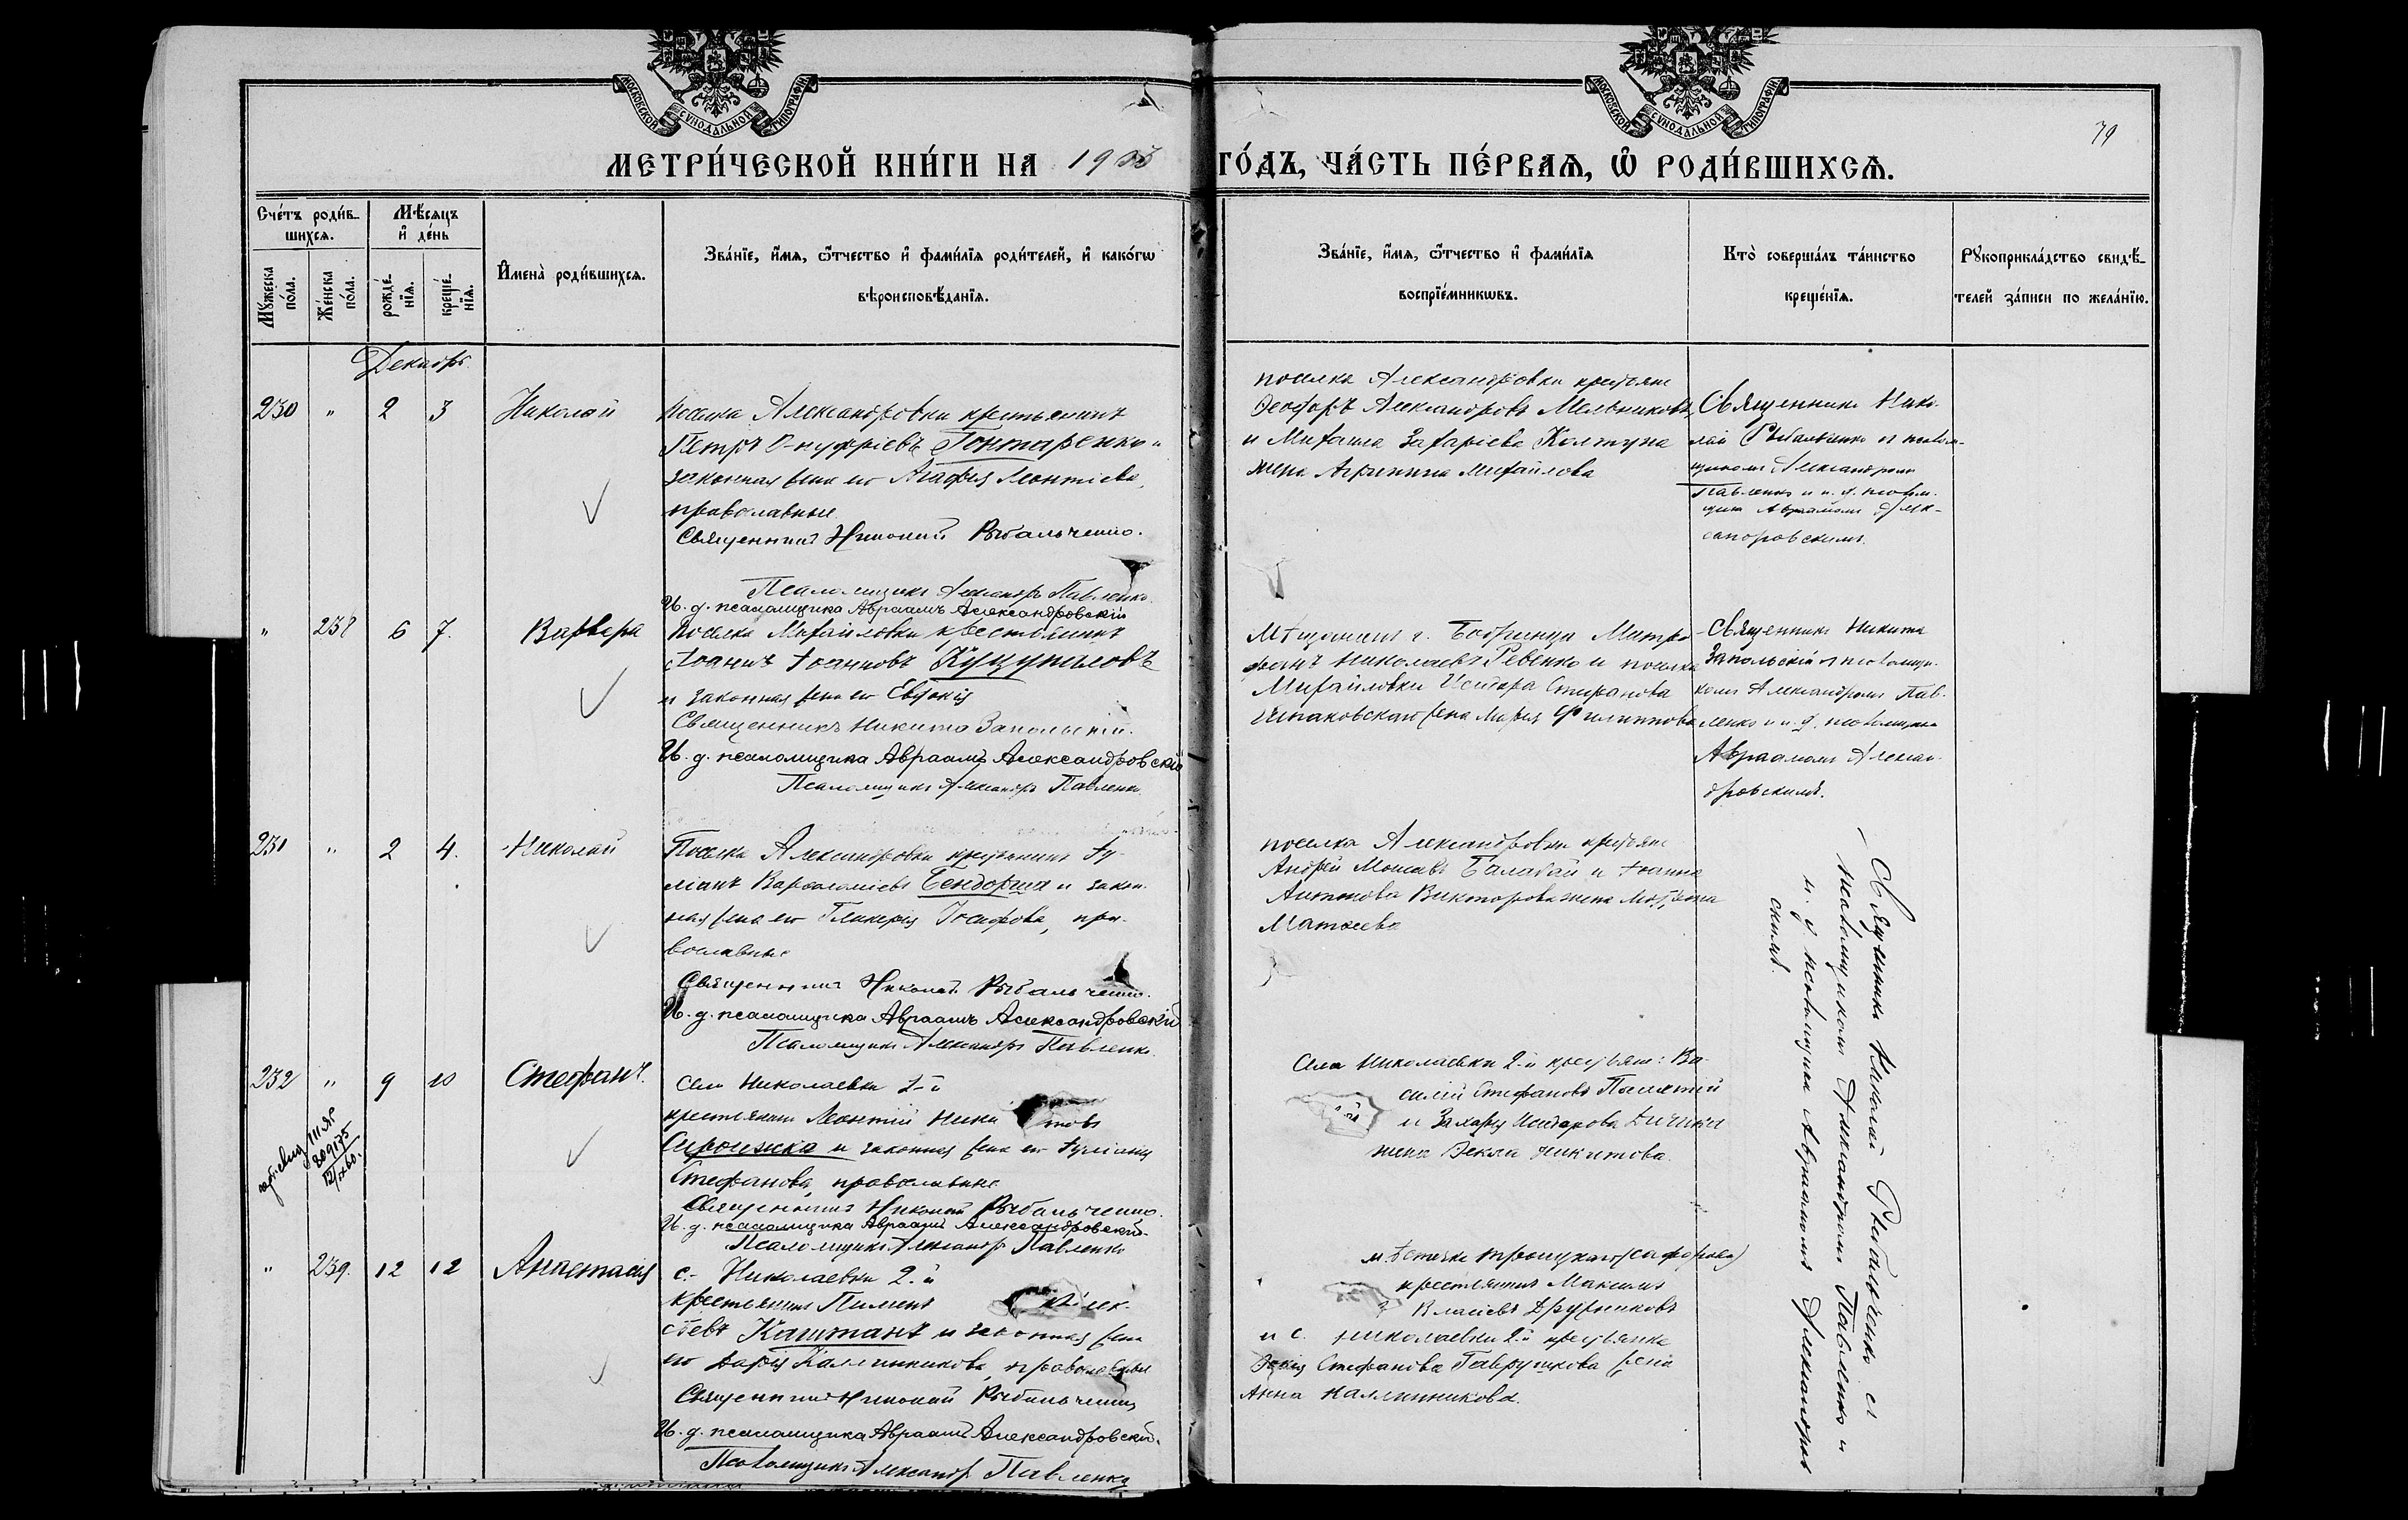 МОСКОВСКОЙ СѴНОДАЛЬНОЙ ТИПОГРАФІИ
МОСКОВСКОЙ СѴНОДАЛЬНОЙ ТИПОГРАФІИ
79
МЕТРИ́ЧЕСКОЙ КНИ́ГИ НА 1905
ГО́ДЪ, ЧА́СТЬ ПЕ́РВАѦ, Ѽ РОДИ́ВШИХСѦ.
Сче́тъ роди́в-
шихсѧ.
Мꙋ́жеска по́ла.
Же́нска по́ла.
Мѣ́сѧцъ
и҆ де́нь
рожде́-
нїѧ.
креще́-
нїѧ.
И҆мена̀ роди́вшихсѧ.
Зва́нїе, и҆́мѧ, ѻ҆́тчество и҆ фами́лїѧ роди́телей, и҆ како́гѡ
вѣроисповѣ́данїѧ.
Зва́нїе, и҆́мѧ, ѻ҆́тчество и҆ фами́лїѧ
воспрїе́мникѡвъ.
Кто̀ соверша́лъ та́инство
креще́нїѧ.
Рꙋкоприкла́дство свидѣ́-
телей за́писи по жела́нїю.
Декабрь
230 " 2 3 Николай
Поселка Александровки крестьянинъ
Петръ Онуфріевъ Гонтаренко и
законная жена его Агафія Леонтіева,
православные
Священникъ Николай Рыбальченко.
Псаломщикъ Александръ Павленко.
И. д. псаломщика Авраамъ Александровскій
поселка Александровки крестьяне
Ѳеодоръ Александровъ Мельниковъ
и Михаила Захаріева Колтуна
жена Агрипина Михайлова
Священникъ Нико-
лай Рыбальченко съ псалом-
щикомъ Александромъ
Павленко и и. д. псалом-
щика Авраамомъ Алек-
сандровскимъ.
" 238 6 7. Варвара
Поселка Михайловки крестьянинъ
Іоаннъ Іоанновъ Куцупаловъ
и законная жена его Евдокія
Священникъ Никита Запольскій.
И. д. псаломщика Авраамъ Александровскій
Псаломщикъ Александръ Павленко
Мѣщанинъ г. Бобринца Митро-
фанъ Николаевъ Ревенко и поселка
Михайловки Исидора Стефанова
жена Марія Филиппова
Священникъ Никита
Запольскій съ псаломщи-
комъ Александромъ Пав-
ленко и и. д. псаломщика
Авраамомъ Алексан-
дровскимъ.
231 " 2 4. Николай
Поселка Александровки крестьянинъ Іу-
ліанъ Варѳоломіевъ Бендорша и закон-
ная жена его Гликерія Іосифова, пра-
вославные
Священникъ Николай Рыбальченко.
И. д. псаломщика Авраамъ Александровскій
Псаломщикъ Александръ Павленко.
поселка Александровки крестьяне
Андрей Балабай и Іоанна
Антонова Викторова жена
Матѳеева
Священникъ Николай Рыбальченко съ
псаломщикомъ Александромъ Павленко и
и. д. псаломщика Авраамомъ Александров-
скимъ.
232 " 9 10 Стефанъ.
Села Николаевки 2-й
крестьянинъ Леонтій
и законная жена его Іуліанія
Стефанова, православные
Священникъ Николай Рыбальченко.
И. д. псаломщика Авраамъ Александровскій
Псаломщикъ Александръ Павленко
Села Николаевки 2-й крестьяне: Ва-
силій Стефановъ
и Исидорова
жена Ѳекла Никитова.
" 239. 12 12 Анастасія
с. Николаевки 2-й
крестьянинъ Пименъ Алек-
сѣевъ Каштанъ и законная жена
его Дарія Каллиникова, православные
Священникъ Николай Рыбальченко
И. д. псаломщика Авраамъ Александровскій.
Псаломщикъ Александръ Павленко
мѣстечка
крестьянинъ Максимъ
Власіевъ
и с. Николаевки 2-й крестьянка
Стефанова жена
Анна Каллинникова.